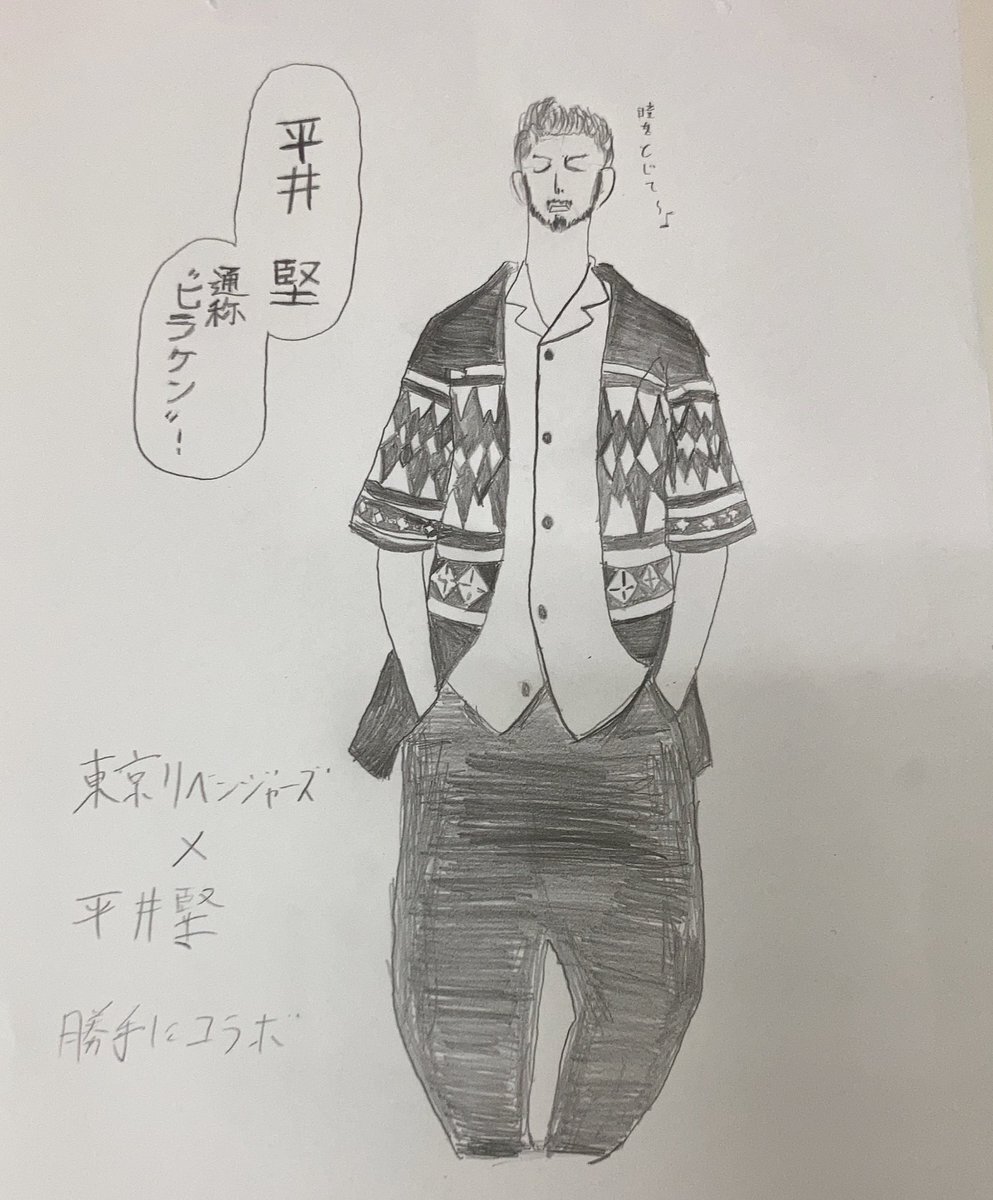 平井 堅
通称
"ヒラケン"!
瞳をとじて〜♪
東京リベンジャーズ
×
平井堅
勝手にコラボ